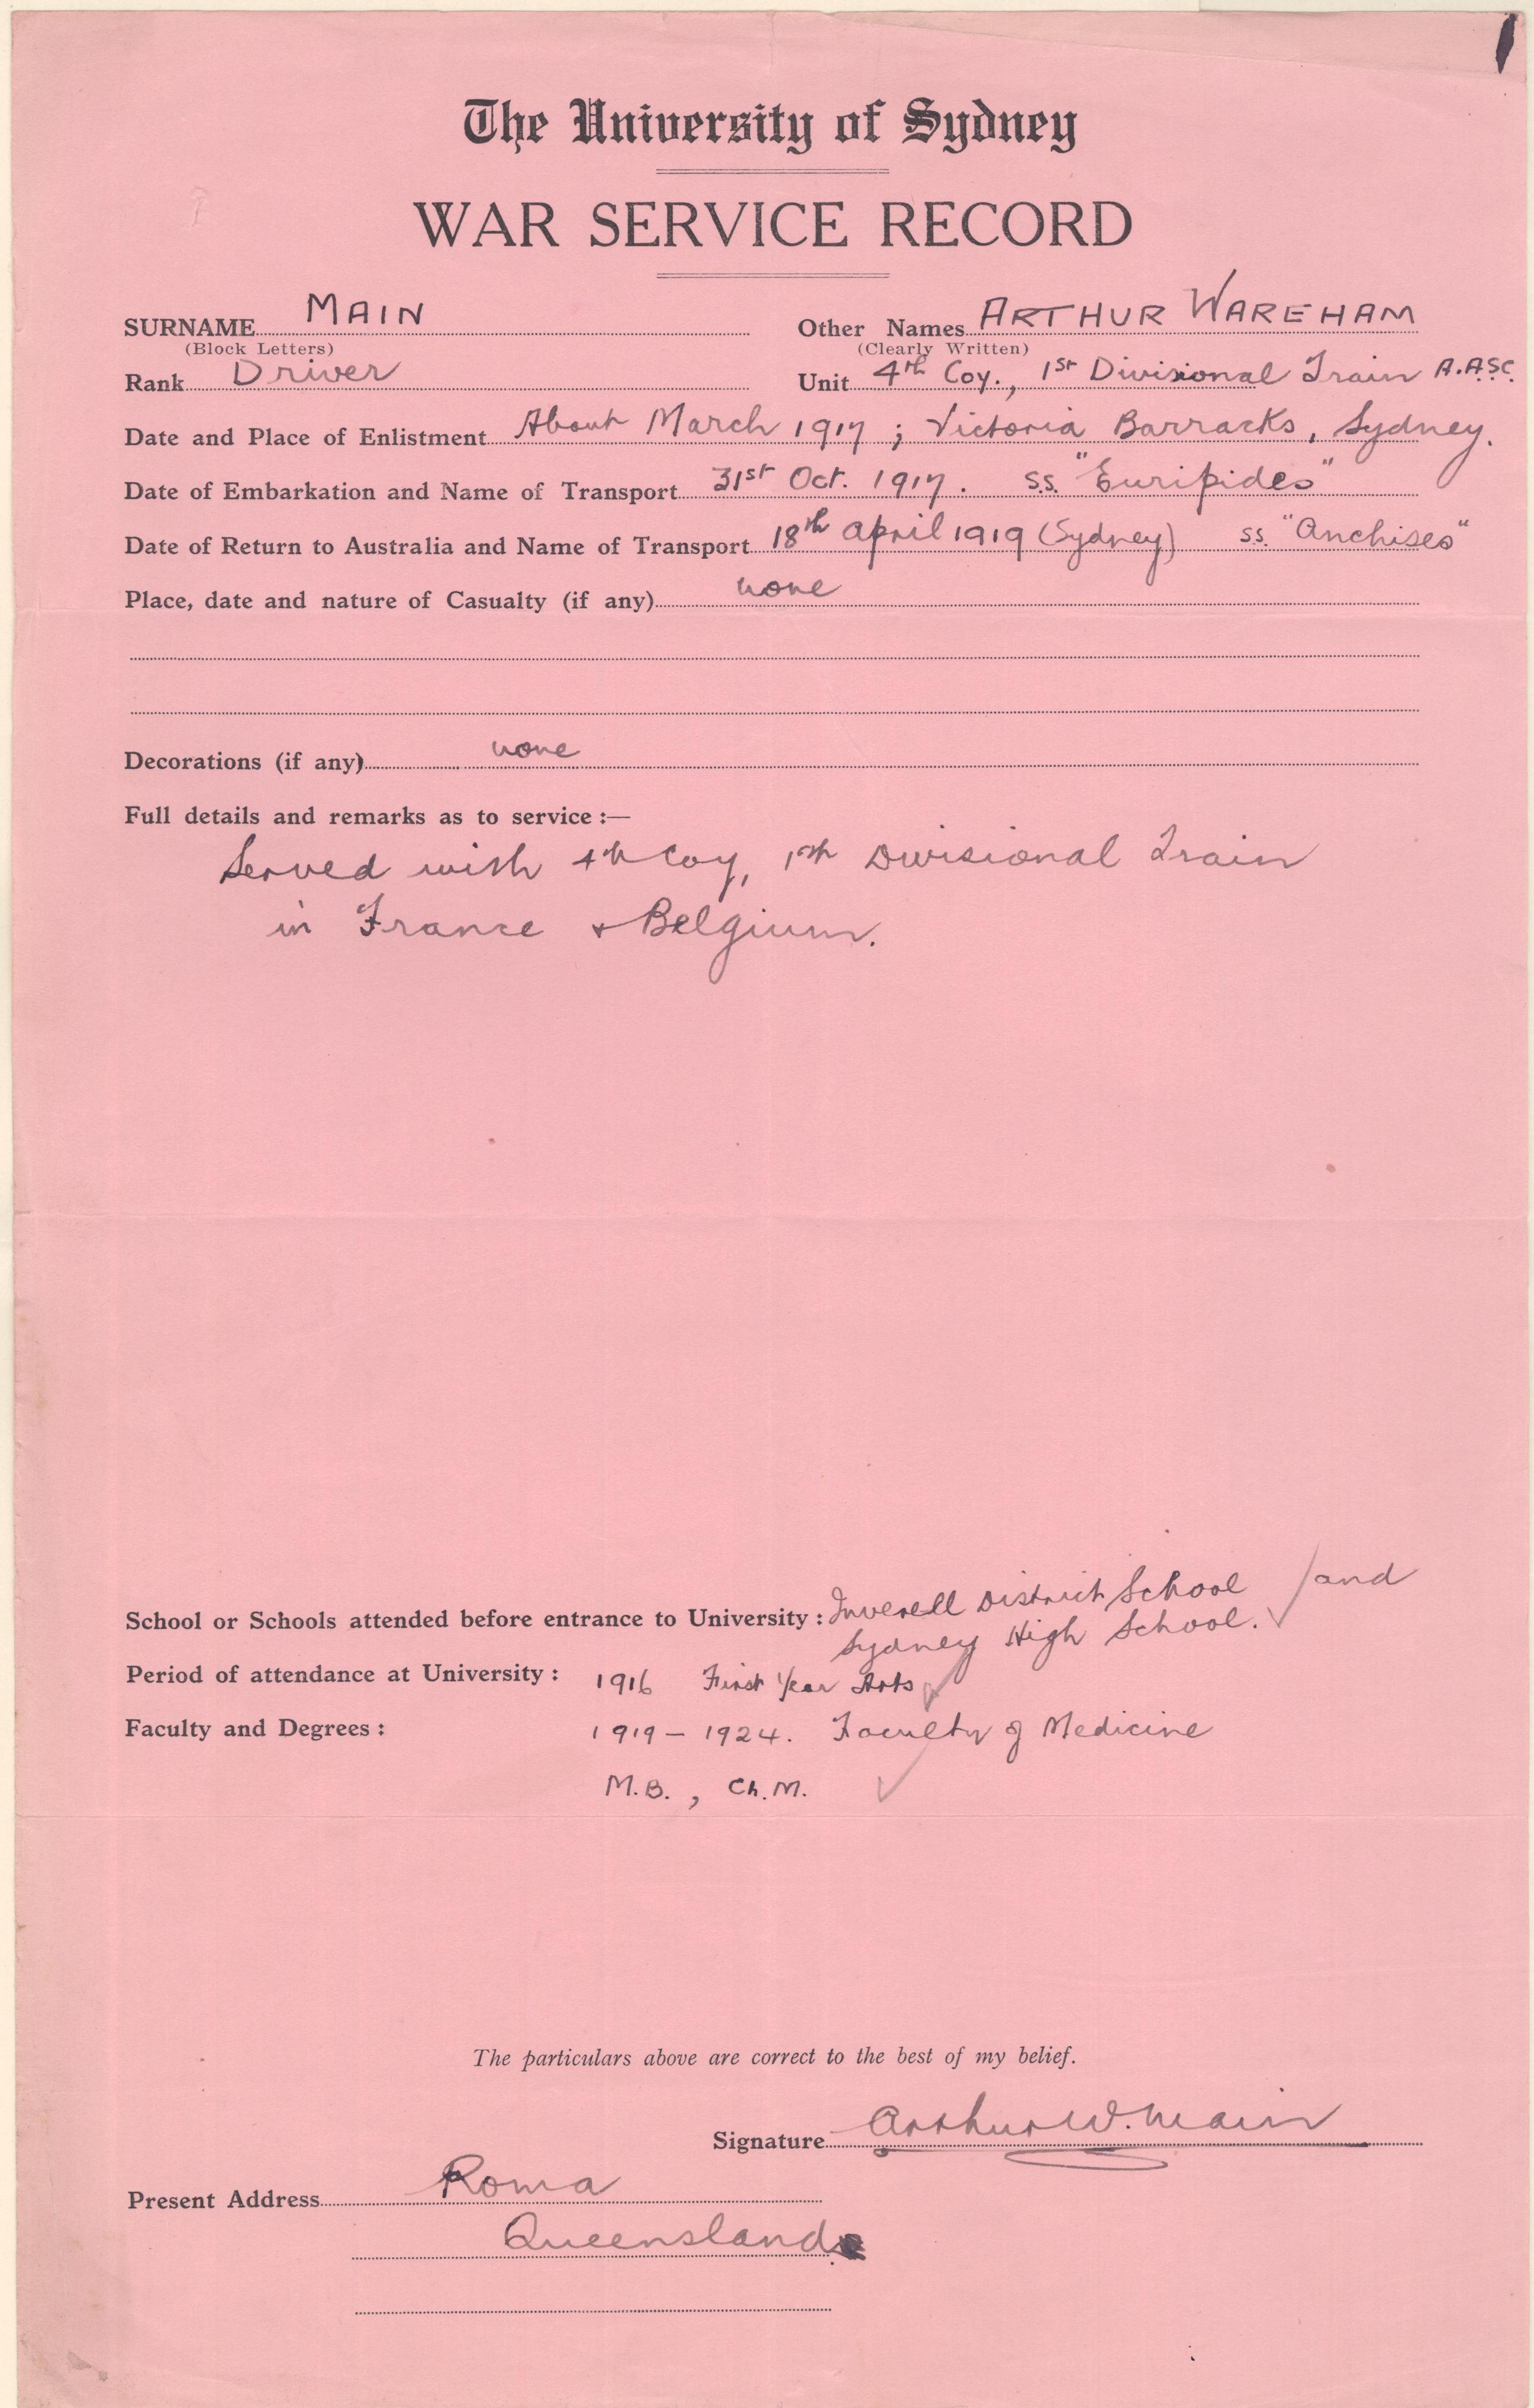 The University of Sydney
WAR SERVICE RECORD
SURNAME MAIN Other Names ARTHUR WAREHAM
(Block Letters) (Clearly Written)
Rank Driver Unit 4th Coy., 1st Divisional Train A.A.S.C.
Date and Place of Enlistment About March 1917 ; Victoria Barracks, Sydney.
Date of Embarkation and Name of Transport 31st Oct. 1917. S.S. "Euripides"
Date of Return to Australia and Name of Transport 18th April 1919 (Sydney) S.S. "Anchises"
Place, date and nature of Casualty (if any) none
Decorations (if any) none
Full details and remarks as to service :—
Served with 4th Coy, 1st Divisional Train
in France + Belgium.
School or Schools attended before entrance to University : Inverell District School and
Sydney High School.
Period of attendance at University : 1916 First Year Arts
Faculty and Degrees : 1919 – 1924. Faculty of Medicine
M.B., Ch.M.
The particulars above are correct to the best of my belief.
Signature Arthur W. Main
Present Address Roma
Queensland